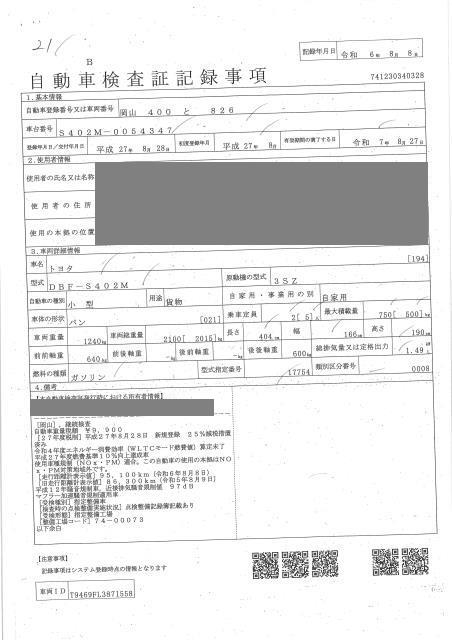 21/
B
自動車検査証記録事項
記録年月日 令和 6年 8月 8日
741230340328
1.基本情報
自動車登録番号又は車両番号 岡山 400 と 826
車台番号 S402M-0054347
登録年月日/交付年月日 平成 27年 8月 28日 初度登録年月 平成 27年 8月 有効期間の満了する日 令和 7年 8月 27日
2.使用者情報
使用者の氏名又は名称
使用者の住所
使用の本拠の位置
3.車両詳細情報
車名 トヨタ [194]
型式 DBF-S402M 原動機の型式 3SZ
自動車の種別 小型 用途 貨物 自家用・事業用の別 自家用
車体の形状 バン [021] 乗車定員 2[ 5]人 最大積載量 750[ 500]kg
車両重量 1240kg 車両総重量 2100[ 2015]kg 長さ 404cm 幅 166cm 高さ 190cm
前前軸重 640kg 前後軸重 -kg 後前軸重 -kg 後後軸重 600kg 総排気量又は定格出力 1.49
燃料の種類 ガソリン 型式指定番号 17754 類別区分番号 0008
4.備考
[岡山],継続検査
自動車重量税額 ¥9,900
[27年度税制]平成27年8月28日 新規登録 25%減税措置
済み
令和4年度エネルギー消費効率(WLTCモード燃費値)算定未了
平成27年度燃費基準10%向上達成車
使用車種規制(NOx・PM)適合,この自動車の使用の本拠はNO
x・PM対策地域外です。
[走行距離計表示値]95,100km(令和6年8月8日)
[旧走行距離計表示値]86,300km(令和5年8月9日)
平成12年騒音規制車,近接排気騒音規制値 97dB
マフラー加速騒音規制適用車
[受検種別]指定整備車
[検査時の点検整備実施状況]点検整備記録簿記載あり
[受検形態]指定整備工場
[整備工場コード]74-00073
以下余白
【注意事項】
記録事項はシステム登録時点の情報となります
車両ID T9469FL3871558